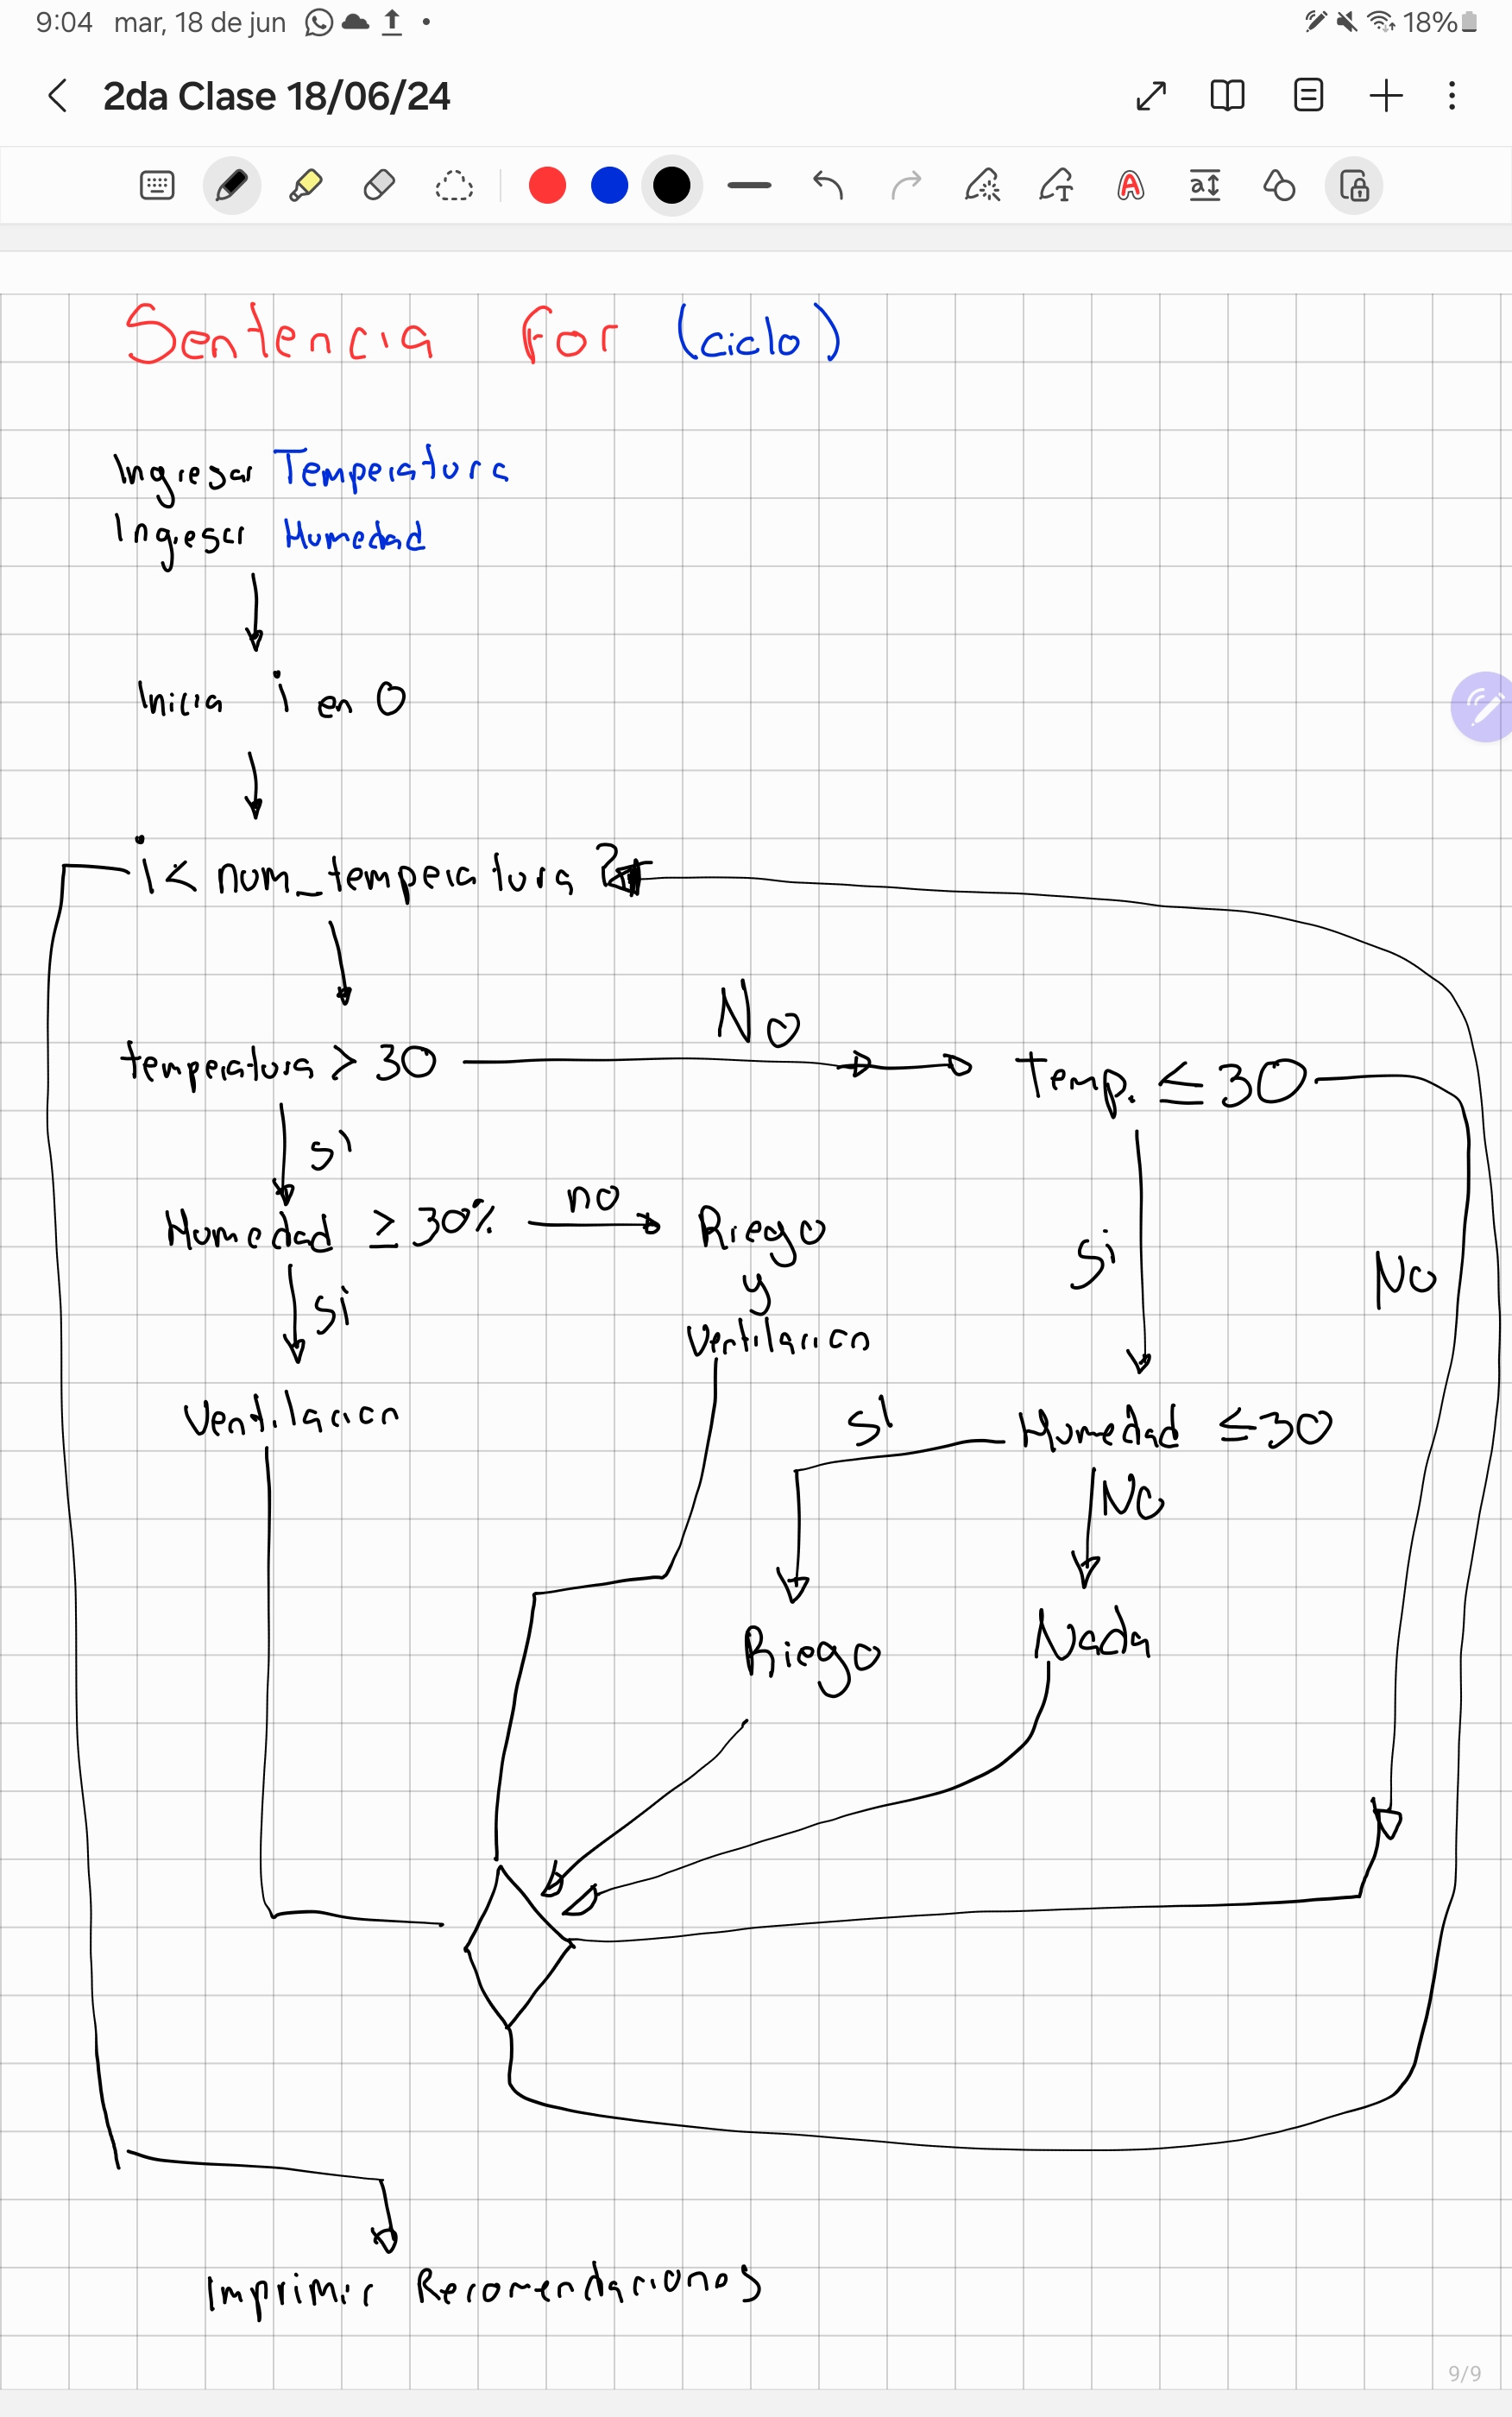 9:04 mar, 18 de jun
18%
2da Clase 18/06/24
Sentencia For (ciclo)
Ingresar Temperatura
Ingresar Humedad
Inicia i en 0
i < num_temperatura ?
No
temperatura > 30
Temp. ≤ 30
si
Humedad ≥ 30%
no
Riego
y
Ventilacion
Si
No
si
Ventilacion
si
Humedad ≤ 30
No
Riego
Nada
Imprimir Recomendaciones
9/9